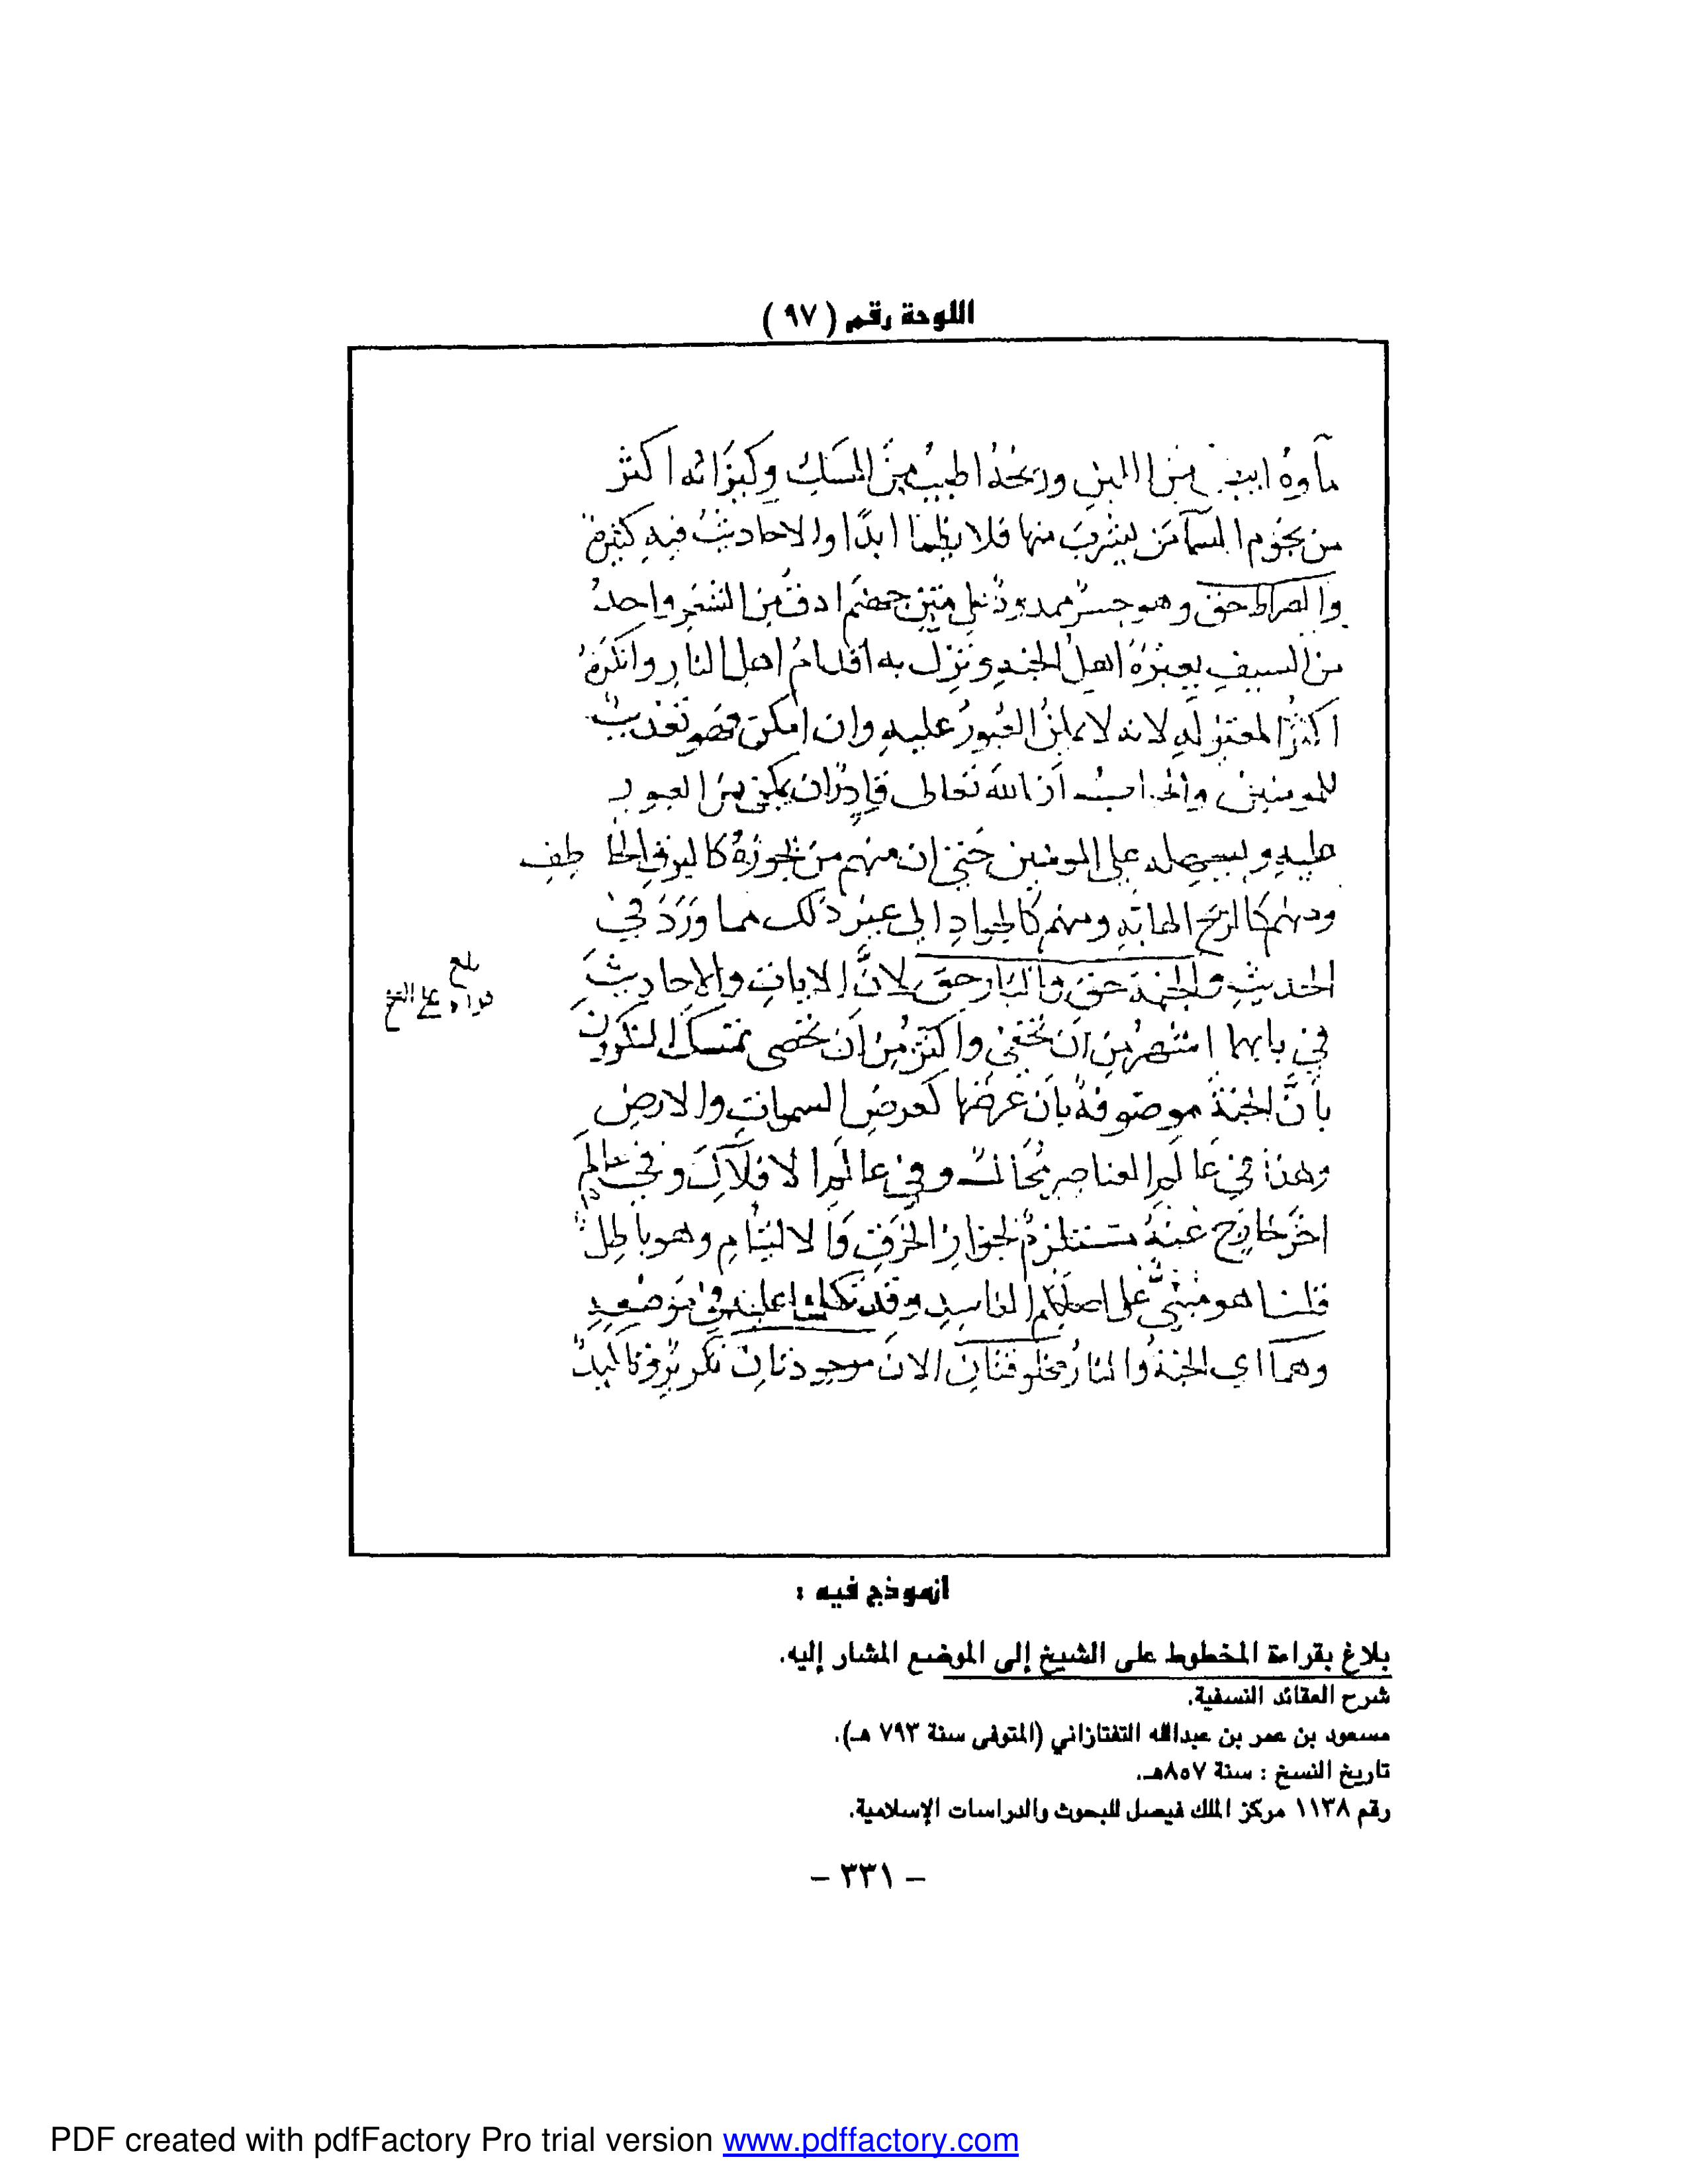 اللوحة رقم (٩٧)
ماوه ابيض من اللبن وريحه اطيب من المسك وكيزانه اكثر
من نجوم السما من يشرب منها فلا يظما ابدا والاحاديث فيه كثيرة
والصراط حق وهو جسر ممدود على متن جهنم ادق من الشعر واحد
من السيف يعبره اهل الجنة وتزل به اقدام اهل النار وانكره
اكثر المعتزلة لانه لا يمكن العبور عليه وان امكن فهو تعذيب
للمومنين والجواب أن الله تعالى قادر ان يمكن من العبور
عليه ويسهله على المومنين حتى ان منهم من يجوزه كالبرق الخاطف
ومنهم كالريح الهابة ومنهم كالجواد الى غير ذلك مما ورد في
الحديث والجنة حق والنار حق لان الايات والاحاديث
بلغ
قراءة على الشيخ
في بابهما اشهر من أن تخفى واكثر من أن تحصى تمسك المنكرون
بأن الجنة موصوفة بأن عرضها كعرض السموات والارض
وهذا في عالم العناصر محال وفي عالم الافلاك وفي عالم
اخر خارج عنه مستلزم لجواز الخرق والالتيام وهو باطل
قلنا هو مبني على اصلكم الفاسد وقد تكلمنا عليه في موضعه
وهما اي الجنة والنار مخلوقتان الان موجودتان تكرير وتاكيد
انموذج فيه :
بلاغ بقراءة المخطوط على الشيخ إلى الموضع المشار إليه.
شرح العقائد النسفية.
مسعود بن عمر بن عبدالله التفتازاني (المتوفى سنة ٧٩٣ هـ).
تاريخ النسخ : سنة ٨٥٧هـ.
رقم ١١٣٨ مركز الملك فيصل للبحوث والدراسات الإسلامية.
– ٣٣١ –
PDF created with pdfFactory Pro trial version www.pdffactory.com